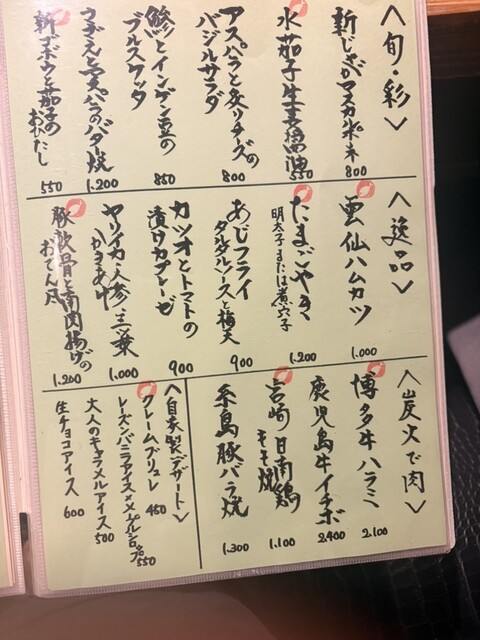 〈旬・彩〉
新じゃがマスカルポーネ
800
水茄子生姜醤油
550
アスパラと炙りチーズの
バジルサラダ
800
鯵とインゲン豆の
ブルスケッタ
850
うすい豆とアスパラのバター焼
1.200
新ゴボウと茄子の
おひたし
550
〈逸品〉
雲仙ハムカツ
1.000
たまごやき
明太子または煮穴子
1.200
あじフライ
タルタルソースと梅天
900
カツオとトマトの
漬けカプレーゼ
900
ヤリイカ・人参・三つ葉
かきあげ
1.000
豚軟骨と南関揚げの
おでん風
1.200
〈炭火で肉〉
博多牛ハラミ
2.100
鹿児島牛イチボ
2.400
宮崎日南鶏
モモ焼
1.100
糸島豚バラ焼
1.300
〈自家製デザート〉
クレームブリュレ
450
レーズンバニラアイス×メープルシロップ
550
大人のキャラメルアイス
500
生チョコアイス
600